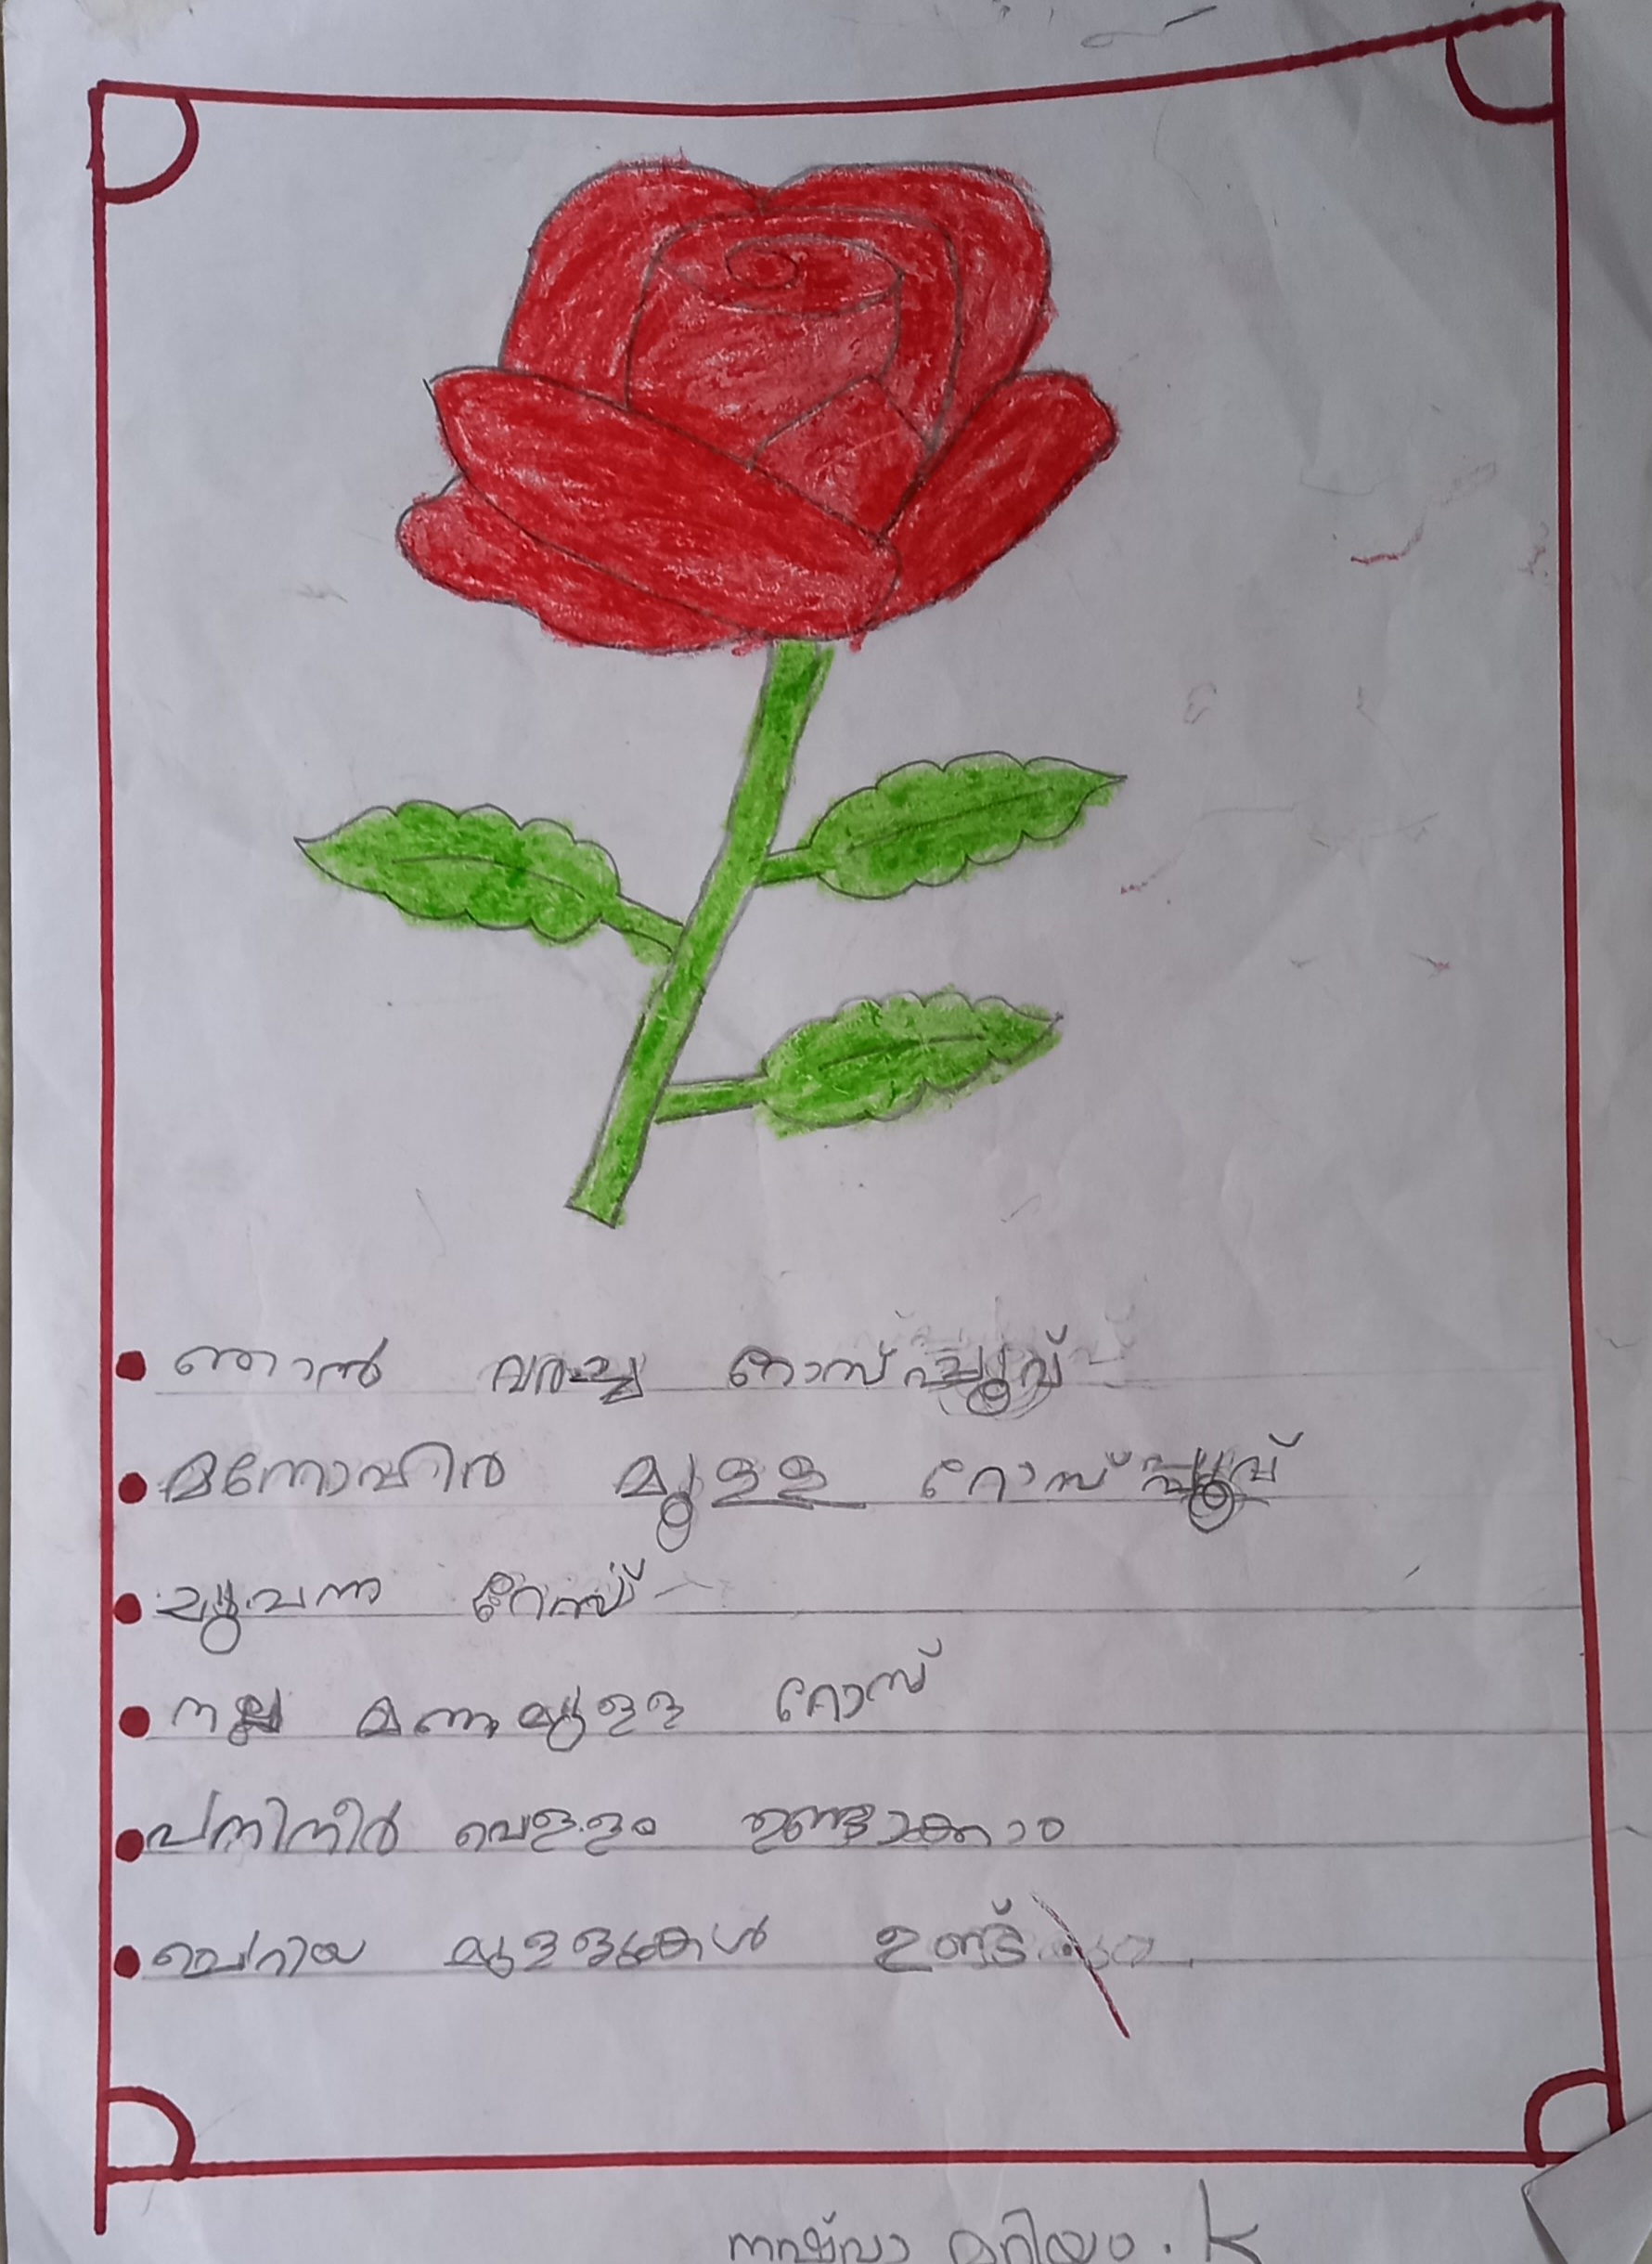 ഞാൻ വരച്ച റോസ് പ്പൂവ്
മനോഹിര മുള്ള റോസ് പ്പൂവ്
ചുവന്ന റോസ്
നല്ല മണമുള്ള റോസ്
പനിനീർ വെള്ളം ഉണ്ടാക്കാം
ചെറിയ മുള്ളുകൾ ഉണ്ട്
നഷ്‌വാ മറിയം . K